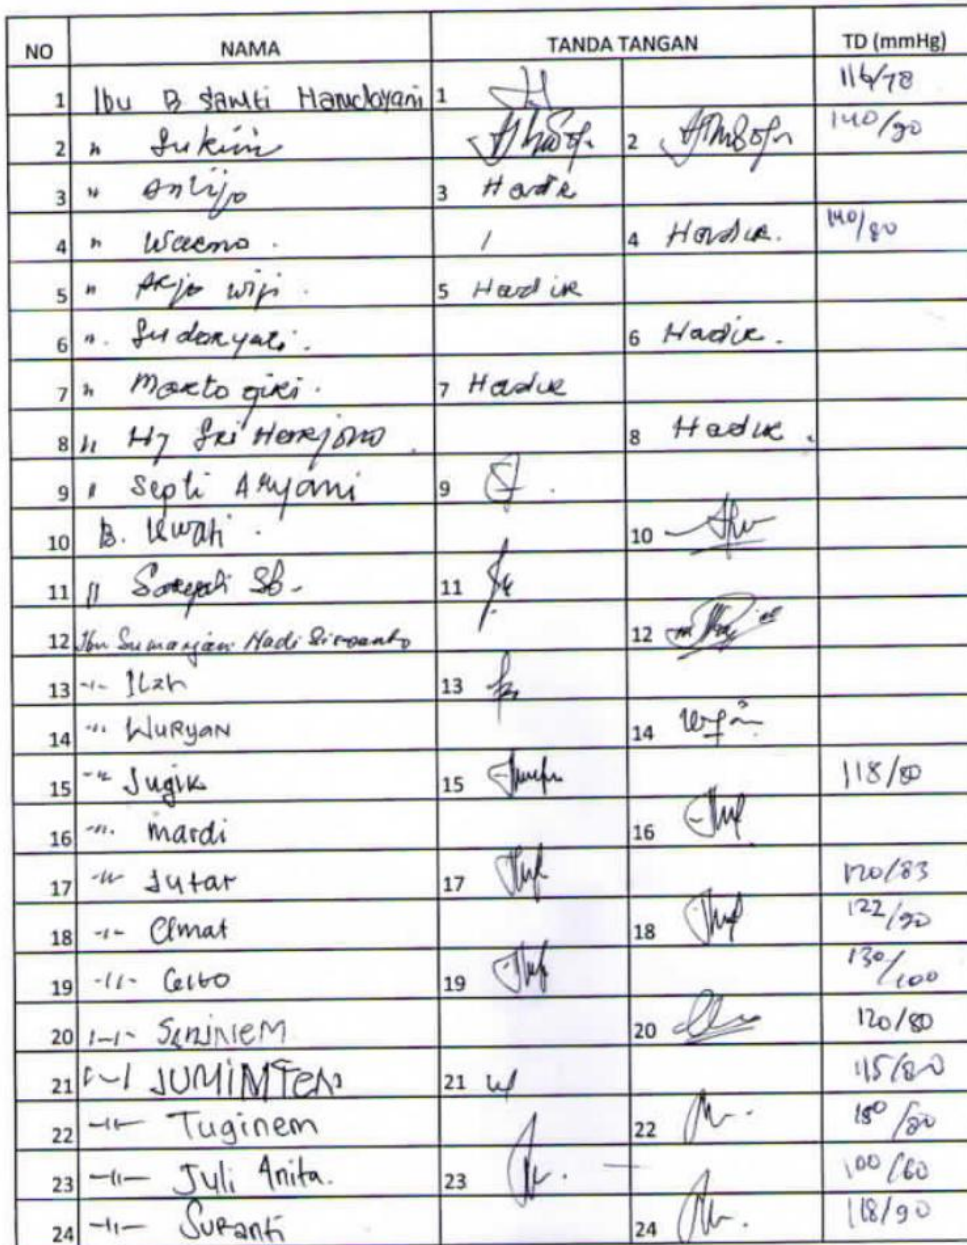 NO NAMA TANDA TANGAN TD (mmHg)
1 Ibu B Santi Handayani 1 116/78
2 " Sukini 2 140/90
3 " 3 Hadir
4 " Waeno. 4 Hadir. 140/80
5 " Arjo wiji. 5 Hadir
6 ". Sudaryati. 6 Hadir.
7 " Marto giri. 7 Hadir
8 " Hj Sri Harjono. 8 Hadir.
9 " Septi Aryani 9
10 B. Uwati. 10
11 " Sb. 11
12 Ibu Sumarjan Hadi Siswanto 12
13 -"- 13
14 -"- WURYAN 14
15 -"- Sugik 15 118/80
16 -"- mardi 16
17 -"- Sutar 17 120/83
18 -"- Clmat 18 122/90
19 -"- 19 130/100
20 -"- 20 120/80
21 -"- JUMiNTEN 21 115/80
22 -"- Tuginem 22 180/80
23 -"- Juli Anita. 23 100/60
24 -"- SuRanti 24 118/90